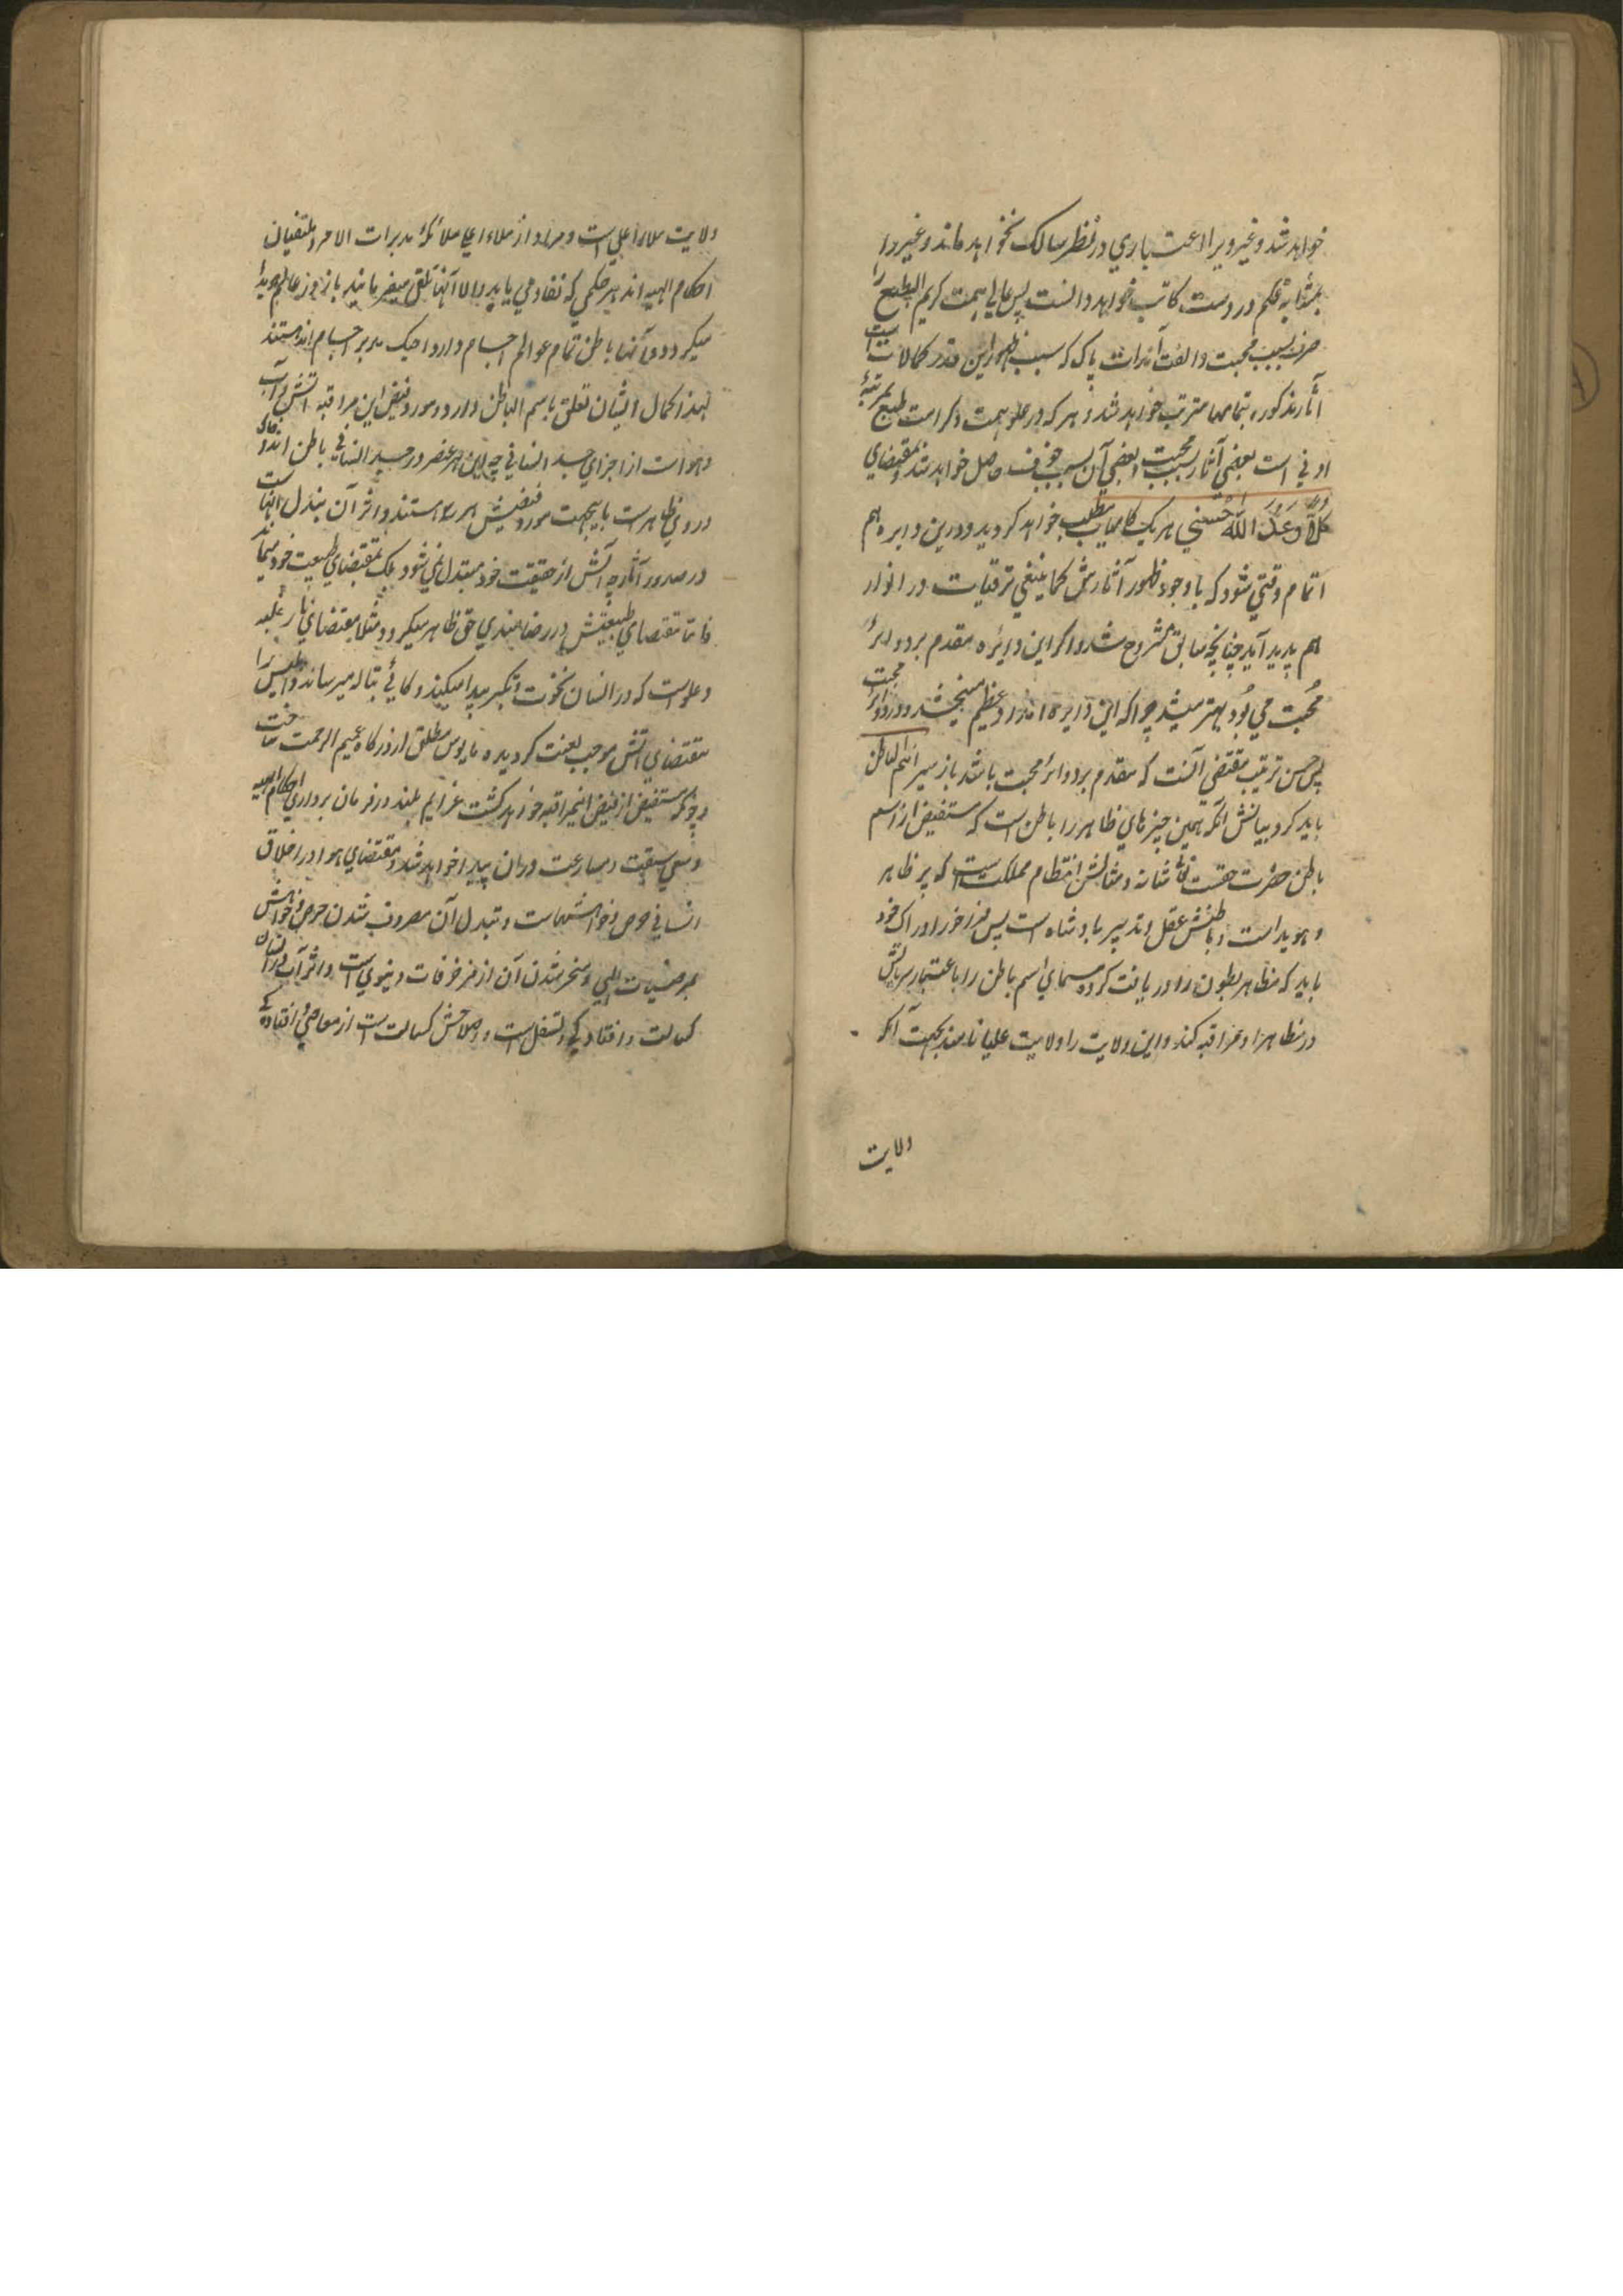 خواهد شد و غیر ویرا اعتباری در نظر سالک نخواهد ماند و غیر را
بمثابه قلم در دست کاتب خواهد دانست پس عالی همت کریم الطبع را
صرف بسبب محبت و الفت آنذات پاک که سبب ظهور این قدر کمالات است
آثار مذکوره بتمامها مترتب خواهد شد و هر که در علو همت و کرامت طبع بمرتبهٔ
ادنی است بعضی آثار بسبب محبت و بعضی آن بسبب خوف حاصل خواهد شد و بمقتضای
كُلًّا وَعَدَ اللّٰهُ الْحُسْنٰى هر یک کامیاب مطلب خواهد گردید و درین دایره هم
اتمام وقتی شود که باوجود ظهور آثارش کما ینبغی ترقیات در انوار
هم پدید آید چنانچه سابق مشروح شد و اگر این دایره مقدم بر دوائر
محبت می بود بهتر میشد چرا که این دایره امداد عظیم میبخشد در دوائر محبت
پس حسن ترتیب مقتضی آنست که مقدم بر دوائر محبت باشد باز سیر اسم الباطن
باید کرد و بیانش آنکه همین چیزهای ظاهر را باطن است که مستفیض از اسم
باطن حضرت حقست تعالی شانه و مثالش انتظام مملکت است که بر ظاهر
و هویداست و باطنش عقل و تدبیر بادشاه است پس فراخور ادراک خود
باید که مظاهر بطون را دریافت کرده مسمای اسم باطن را باعتبار سریانش
در مظاهر او مراقبه کند و این ولایت را ولایت علیا نامند بجهت آنکه
ولایت
ولایت ملاء اعلی است و مراد از ملاء اعلی ملائکه مدبرات الامر و متلقیان
احکام الهیه اند هر حکمی که نفاد می یابد اولا آنها تلقی میفرمایند باز در عالم هویدا
میگردد و آنها باطن تمام عوالم اجسام و ارواحیکه مدبر اجسام اند هستند
لهذا کمال ایشان تعلق باسم الباطن دارد و مورد فیض این مراقبه آتش و آب
و هواست از اجزای جسد انسانی چه این هر عنصر در جسد انسانی باطن اند و خاک
دروی ظاهر است باینجهت مورد فیضش هر سه هستند و اثر آن تبدل آنهاست
در صدور آثار چه آتش از حقیقت خود مبتدل نمی شود بلکه بمقتضای طبیعت خود میماند
فاما مقتضای طبیعتش در رضامندی حق ظاهر میگردد مثلا مقتضای نار غلبه
و علو است که در انسان نخوت و تکبر پیدا میکند و کافی بتاله میرساند و ابلیس را
مقتضای آتش موجب لعنت گردیده مایوس مطلق از درگاه عمیم الرحمت ساخت
و چونکه مستفیض از فیض اینمراقبه خواهد گشت عزایم بلند در فرمان برداری احکام الهیه
و سعی سبقت و مسارعت دران پیدا خواهد شد و مقتضای هوا در اخلاق
انسانی حرص و خواهشهاست و تبدل آن مصروف شدن حرص و خواهش
بمرضیات الهی و منحرف شدن آن از مزخرفات دنیوی است و اثر آب در انسان
کسالت و افتادگی و تسفل است و اصلاحش کسالت است از معاصی و افتادگی